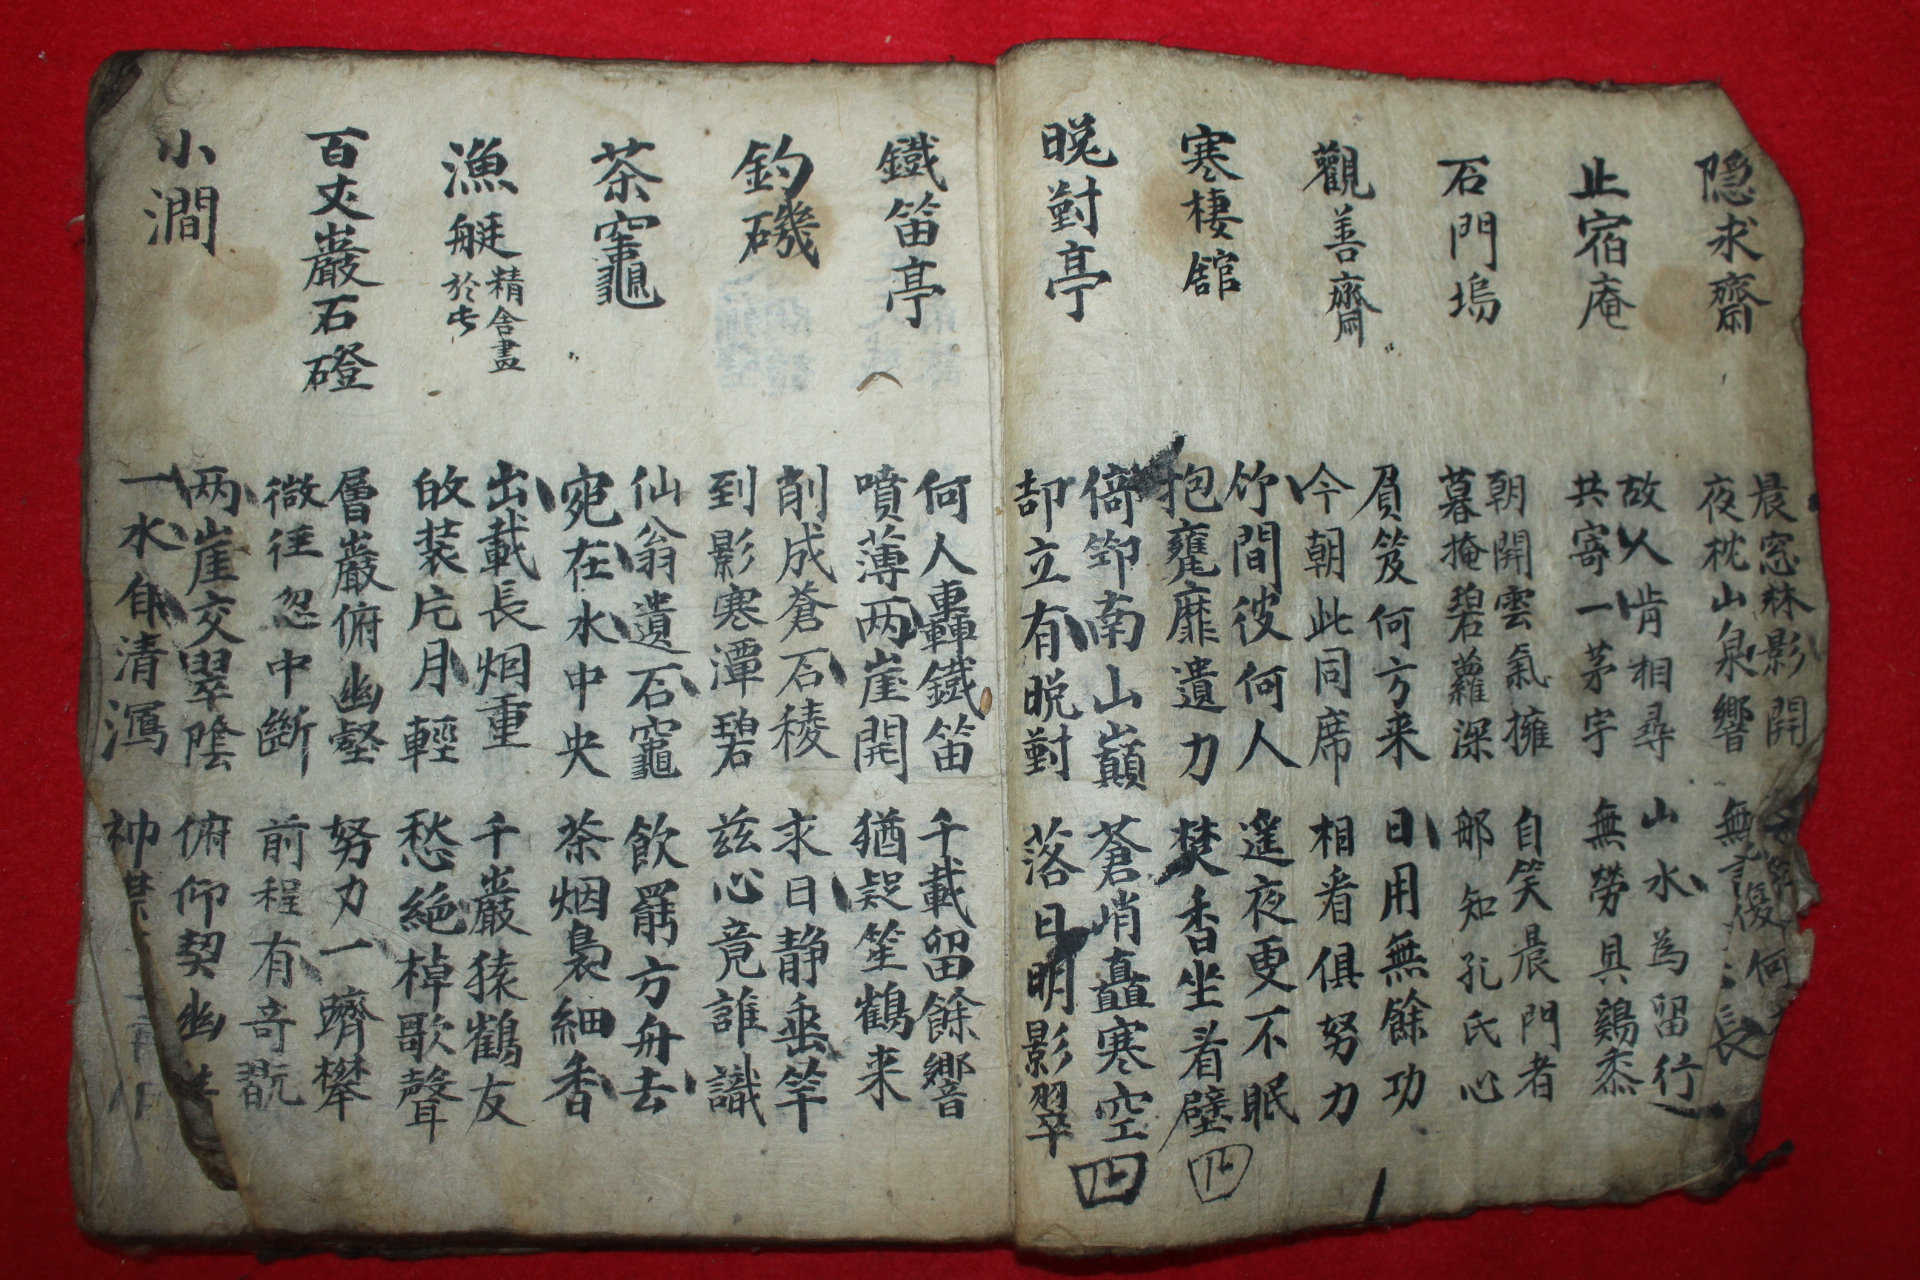 隐求齋
晨窓林影開
夜枕山泉響
復何
無言 長
止宿庵
故人肯相尋
共寄一茅宇
山水為留行
無勞具鷄黍
石門塢
朝開雲氣擁
暮掩碧蘿深
自笑晨門者
那知孔氏心
觀善齋
負笈何方来
今朝此同席
日用無餘功
相看俱努力
寒棲館
竹間彼何人
抱甕靡遺力
遥夜更不眠
焚香坐看壁
晚對亭
倚笻南山巔
却立有晚對
蒼峭矗寒空
落日明影翠
鐵笛亭
何人轟鐵笛
噴薄两崖開
千載留餘響
猶疑笙鶴来
釣磯
削成蒼石稜
到影寒潭碧
求日静垂竿
玆心竟誰識
茶竈
仙翁遺石竈
宛在水中央
飲罷方舟去
茶烟裊細香
漁艇
精舍盡
於此
出載長烟重
㱕装片月輕
千巖猿鶴友
愁絶棹歌聲
百丈巖石磴
層巖俯幽壑
微徑忽中斷
努力一躋攀
前程有奇翫
小澗
两崖交翠陰
一水自清瀉
俯仰契幽
神襟